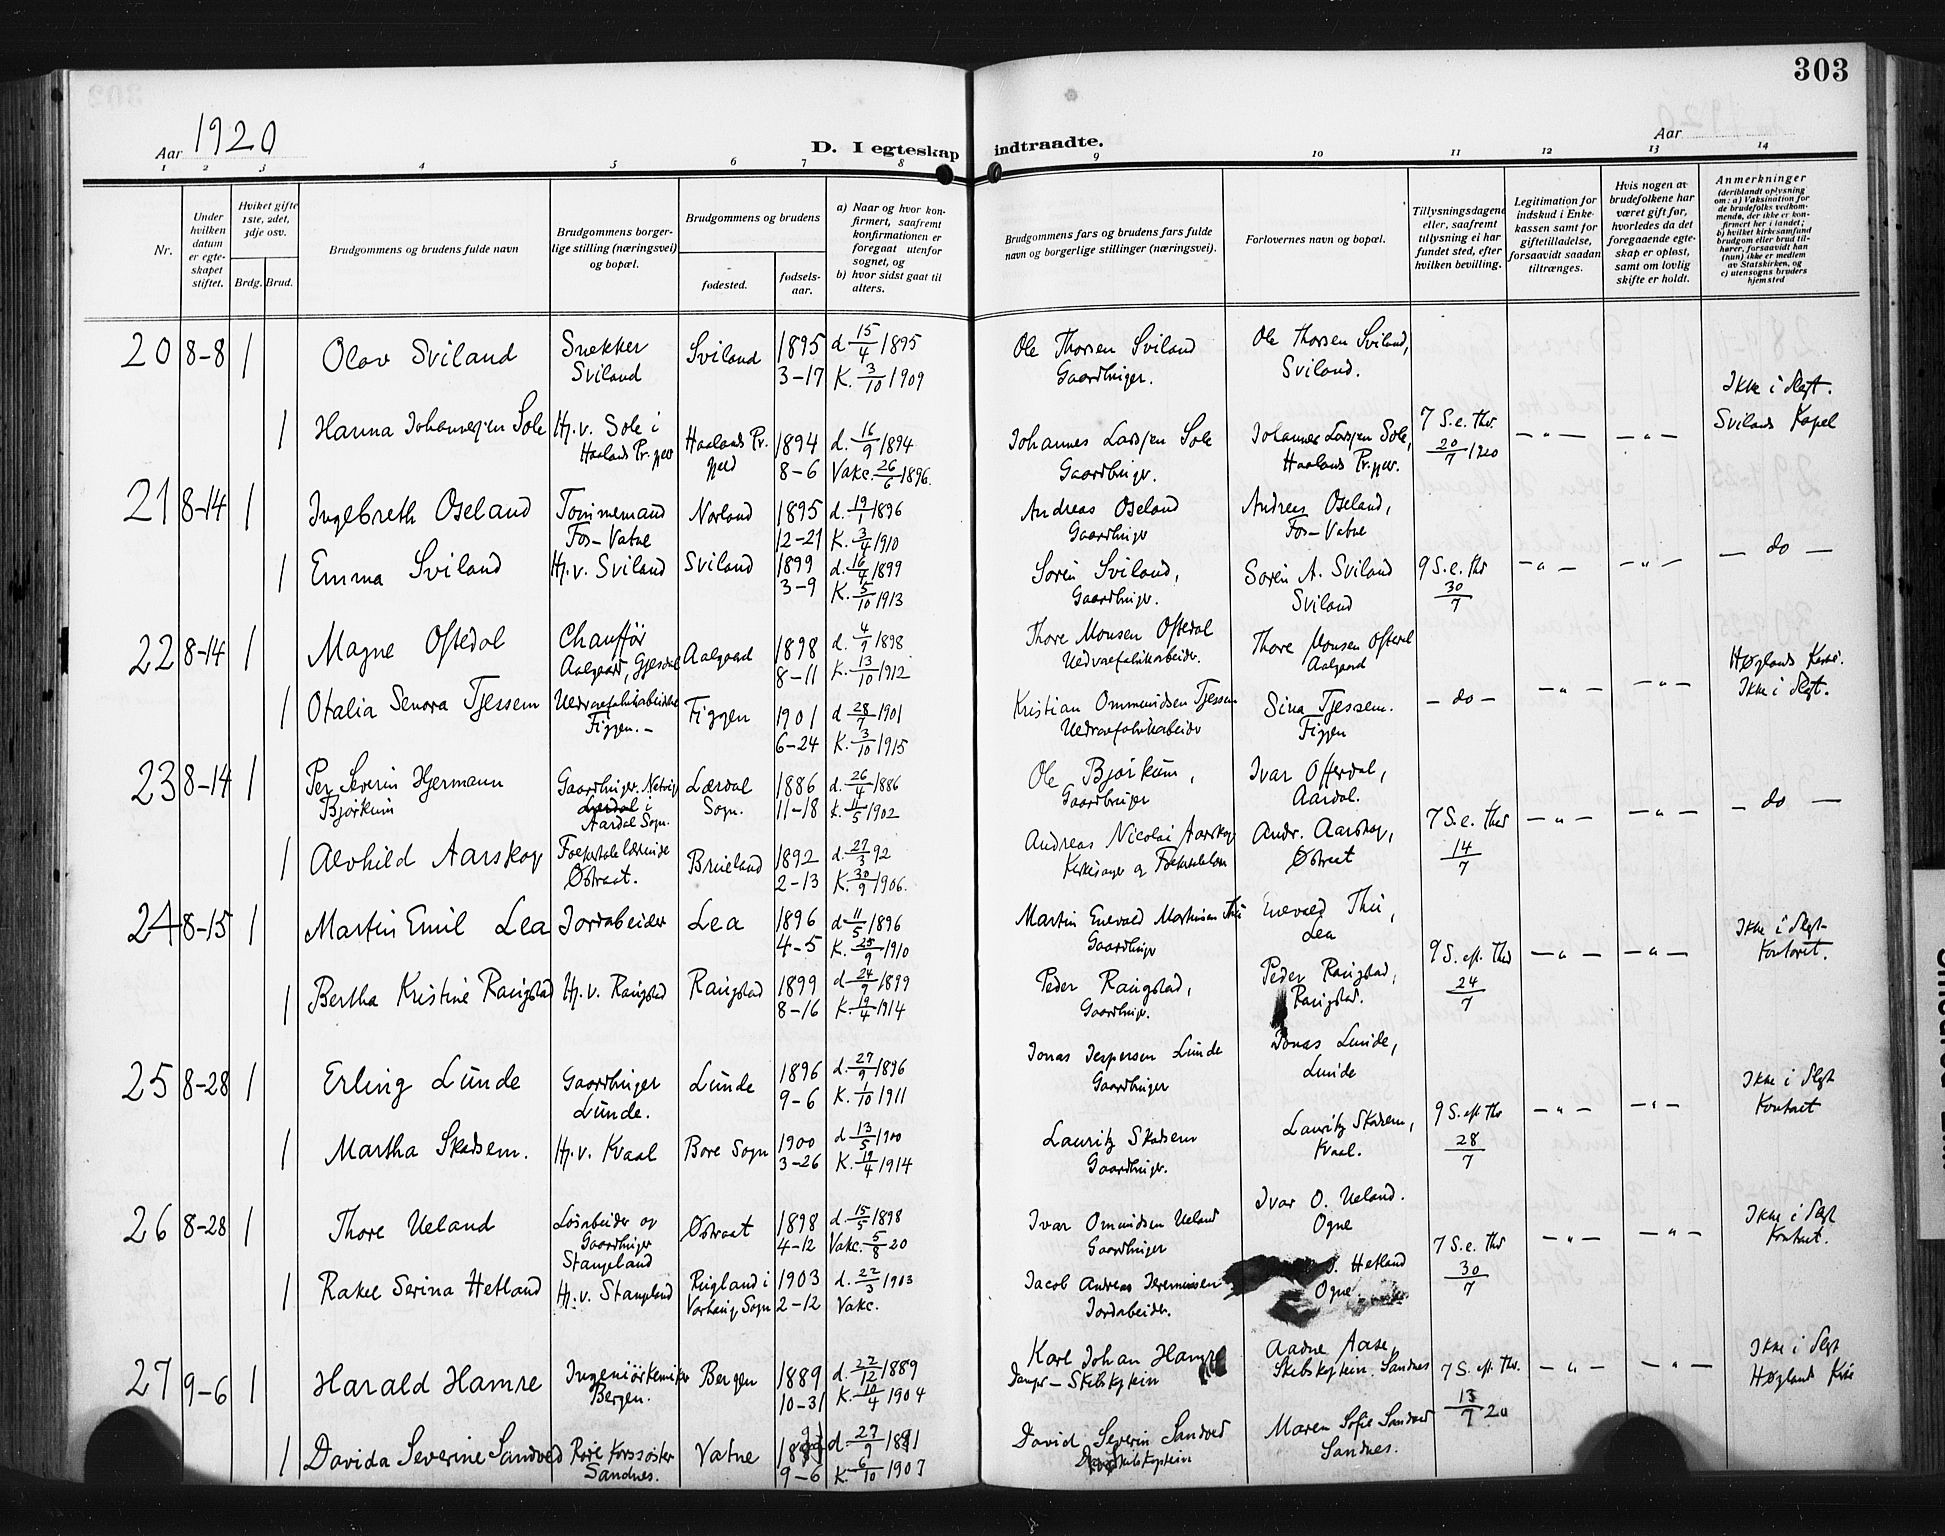 303
Aar 1920
D. I egteskap indtraadte.
Aar
1 2 3 4 5 6 7 8 9 10 11 12 13 14
Nr.
Under hvilken datum er egteskapet stiftet.
Hvilket gifte 1ste, 2det, 3dje osv.
Brdg. Brud.
Brudgommens og brudens fulde navn
Brudgommens borgerlige stilling (næringsvei) og bopæl.
Brudgommens og brudens
fødested.
fødselsaar.
a) Naar og hvor konfirmert, saafremt konfirmationen er foregaat utenfor sognet, og
b) hvor sidst gaat til alters.
Brudgommens fars og brudens fars fulde navn og borgerlige stillinger (næringsvei).
Forlovernes navn og bopæl.
Tillysningsdagene eller, saafremt tillysning ei har fundet sted, efter hvilken bevilling.
Legitimation for indskud i Enkekassen samt for giftetilladelse, forsaavidt saadan tiltrænges.
Hvis nogen av brudefolkene har været gift før, hvorledes da det foregaaende egteskap er opløst, samt om lovlig skifte er holdt.
Anmerkninger
(deriblandt oplysning om: a) Vaksination for de brudefolks vedkommende, der ikke er konfirmert her i landet; b) hvilket kirkesamfund brudgom eller brud tilhører, forsaavidt han (hun) ikke er medlem av Statskirken, og c) utensogns bruders hjemsted
20 8-8 1 Olav Sviland Snekker Sviland Sviland 1895 3-17 d. 15/4 1895 K. 3/10 1909 Ole Thorsen Sviland Gaardbruger. Ole Thorsen Sviland, Sviland.
Ikke i Slegt.
1 Hanna Johannesen Sole Hj.v. Sole i Haalands Pr.gjeld Haalands Pr.gjeld 1894 8-6 d. 16/9 1894 Vakc. 26/6 1896. Johannes Larsen Sole Gaardbruger. Johannes Larsen Sole, Haalands Pr.gjeld. 7 S. e. Thr. 20/7 1920 — " — — " — Svilands Kapel
21 8-14 1 Ingebreth Oseland Tømmermand Fos-Vatne Norland 1895 12-21 d. 19/1 1896 K. 3/4 1910 Andreas Oseland Gaardbruger Andreas Oseland, Fos-Vatne
1 Emma Sviland Hj.v. Sviland Sviland 1899 3-9 d. 16/4 1899 K. 5/10 1913 Soren Sviland, Gaardbruger. Soren A. Sviland Sviland 9 S. e. Thr 30/7 — " — — " — — do —
22 8-14 1 Magne Oftedal Chauffør Aalgaard, Gjesdal Aalgaard 1898 8-11 d. 4/9 1898 K. 13/10 1912 Thore Monsen Oftedal Uldvarefabrikarbeider. Thore Monsen Oftedal Aalgaard
Høglands Kirke.
1 Otalia Senora Tjessem Uldvarefabrikarbeider Figgen. Figgen 1901 6-24 d. 28/7 1901 K. 3/10 1915 Kristian Ommundsen Tjessem Uldvarefabrikarbeider Sina Tjessem. Figgen — do — — " — — " — Ikke i Slegt.
23 8-14 1 Per Severin Hjermann Bjørkum Gaardbruger. i Aardal Sogn. Lærdal Sogn. 1886 11-18 d. 26/4 1886 K. 11/5 1902 Ole Bjørkum, Gaardbruger Ivar Offerdal, Aardal.
1 Alvhild Aarskog Østraat. Brueland 1892 2-13 d. 27/3 92 K. 30/9 1906. Andreas Nicolai Aarskog Kirkesanger og Andr. Aarskog, Østraat 7 S. e. Thr 14/7 — " — — " — — do —
24 8-15 1 Martin Emil Lea Jordarbeider Lea 1896 4-5 d. 11/5 1896 K. 25/9 1910 Martin Enevald Martinsen Thu Gaardbruger Enevald Thu, Lea
Ikke i Slegt
1 Bertha Kristine Raugstad Hj.v. Raugstad Raugstad 1899 8-16 d. 24/9 1899 K. 19/4 1914 Peder Raugstad, Gaardbruger. Peder Raugstad, Raugstad. 9 S. eft. Thr 24/7 — " — — " — Kontoret.
25 8-28 1 Erling Lunde Gaardbruger Lunde. Lunde 1896 9-6 d. 27/9 1896 K. 1/10 1911 Jonas Jespersen Lunde Gaardbruger Jonas Lunde, Lunde
Ikke i Slegt
1 Martha Skadsem. Hj.v. Kvaal Bore Sogn 1900 3-26 d. 13/5 1900 K. 19/4 1914 Lauritz Skadsem Gaardbruger. Lauritz Skadsem, Kvaal. 9 S. eft Thr 28/7 — " — — " — Kontoret
26 8-28 1 Thore Ueland Løsarbeider og Gaardbruger Stangeland Østraat 1898 4-12 d. 15/5 1898 Vakc. 5/8 20 Ivar Omundsen Ueland Gaardbruger Ivar O. Ueland. Ogne
Ikke i Slegt
1 Rakel Serina Hetland Hj.v. Stangeland Rugland i Varhaug Sogn 1903 2-12 d. 22/3 1903 Vakc. Jacob Andreas Jeremiassen Jordarbeider. Hetland Ogne. 7 S. e. Thr 30/7 — " — — " — Kontoret.
27 9-6 1 Harald Hamre Ingeniørkemiker Bergen. Bergen 1889 10-31 d. 22/12 1889 K. 10/4 1904 Karl Johan Hamre Damps-Skibskaptein Aadne Aase, Skibskaptein. Sandnes 7 S. eft. Thr. 13/7 20 — " — — " — Ikke i Slegt Høgland Kirke
1 Davida Severine Sandved Røde Korssøster Sandnes. Vatne 9-6 d. 27/9 1891 K. 6/10 1907 David Severin Sandved Maren Sofie Sandved Sandnes.